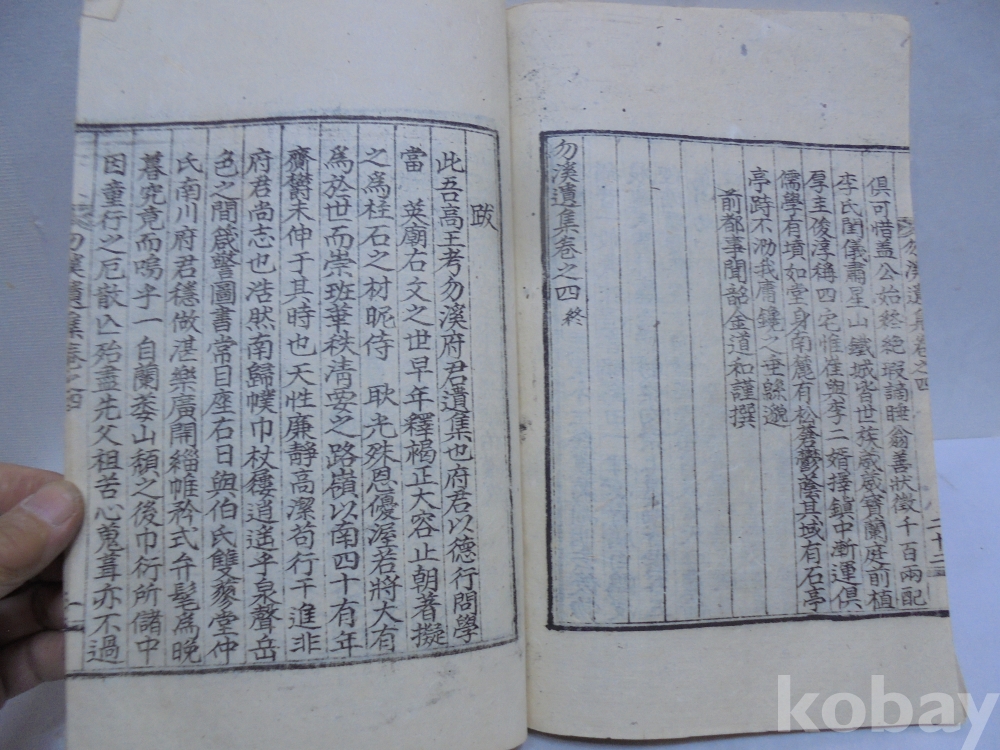 俱可惜盖公始終絶瑕謫睡翁善狀徵千百兩配
李氏閨儀肅星山鐵城皆世族葳葳寶蘭庭前植
厚主後浮稱四宅惟崔與李二婿捶鎭中漸運俱
儒學有墳如堂身南麓有松蒼鬱蔭其城有石亭
亭跱不泐我庸鑱之垂緜邈
前都事聞韶金道和謹撰
勿溪遺集卷之四 終
勿溪遺集卷之四
二十二
跋
此吾高王考勿溪府君遺集也府君以德行問學
當 英廟右文之世早年釋褐正大容止朝著擬
之爲柱石之材昵侍 耿光殊恩優渥若將大有
爲於世而崇班華秩清要之路嶺以南四十有年
齎鬱未伸于其時也天性廉靜高潔苟行千進非
府君尚志也浩然南歸幞巾杖屨逍遙乎泉聲岳
色之間箴警圖書常目座右日與伯氏雙䕺堂仲
氏南川府君穩做湛樂廣開緇帷矜式弁髦爲晩
暮究竟而嗚乎一自蘭萎山頹之後巾衍所儲中
因童行之厄散亾殆盡先父祖苦心蒐葺亦不過
勿溪遺集卷之四
一
kobay